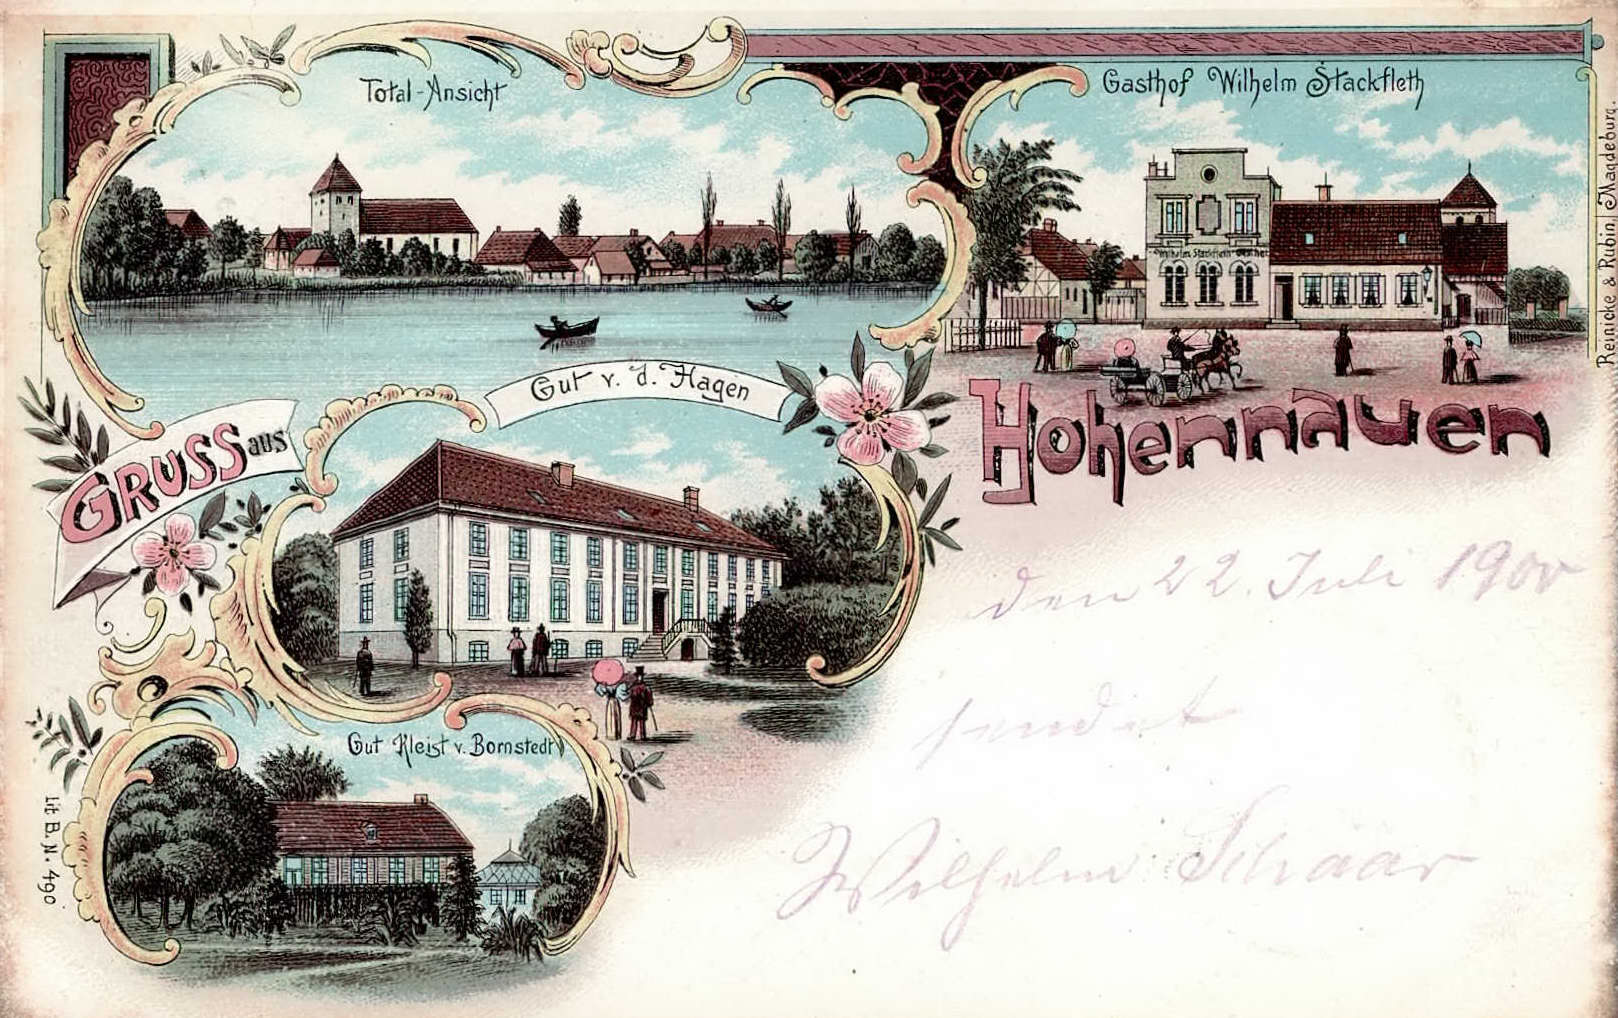 Total-Ansicht
Gasthof Wilhelm Stackfleth
Wilhelm Stackfleth
Reinicke & Rubin, Magdeburg
Gut v. d. Hagen
GRUSS aus
Hohennauen
den 22. Juli 1900
sendet
Wilhelm Schaar
Gut Kleist v. Bornstedt
lit B. N. 490